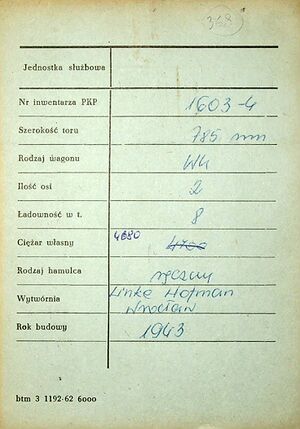 368
Jednostka służbowa
Nr inwentarza PKP 1603-4
Szerokość toru 785 mm
Rodzaj wagonu
Ilość osi 2
Ładowność w t. 8
Ciężar własny 4680 4700
Rodzaj hamulca ręczny
Wytwórnia Linke Hofman
Wrocław
Rok budowy 1943
btm 3 1192-62 6000